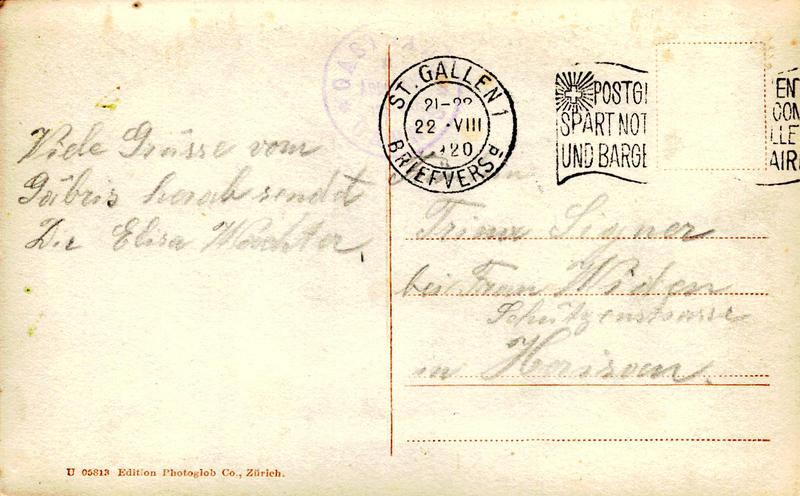 Viele Grüsse vom
Gäbris herab sendet
Dir Elisa Wachter.
ST. GALLEN 1
21-22
22.VIII
20
BRIEFVERSd
POSTG
SPART NOT
UND BARGE
ENT
CON
LLE
AIR
Signer
bei Frau Widen
Schützenstrasse
in Herisau.
U 05813 Edition Photoglob Co., Zürich.